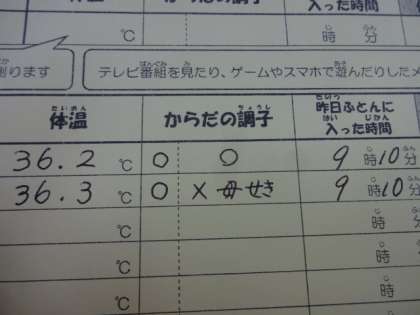 ℃ 時 分
測ります テレビ番組を見たり、ゲームやスマホで遊んだりした
体温 からだの調子 昨日ふとんに
入った時間
36.2 ℃ ○ ○ 9 時 10 分
36.3 ℃ ○ × せき 9 時 10 分
℃ 時 分
℃ 時
℃ 時